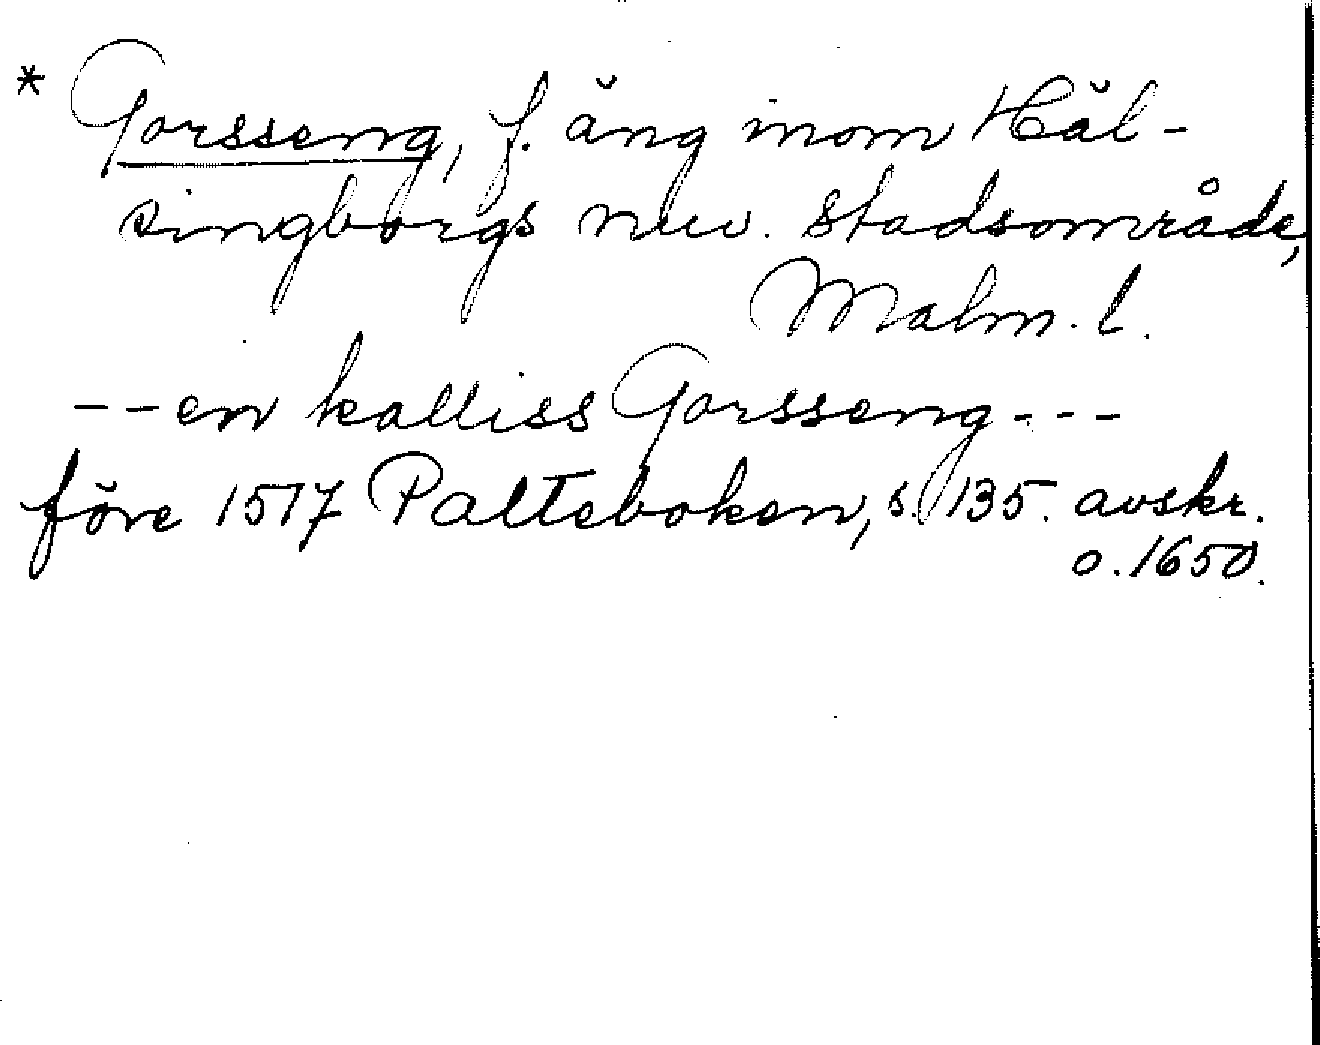 * Gorsseng, f. äng inom Häl-
singborgs nuv. stadsområde,
Malm. l.
--en kalliss Gorsseng---
före 1517 Palteboken, s. 135. avskr.
o. 1650.